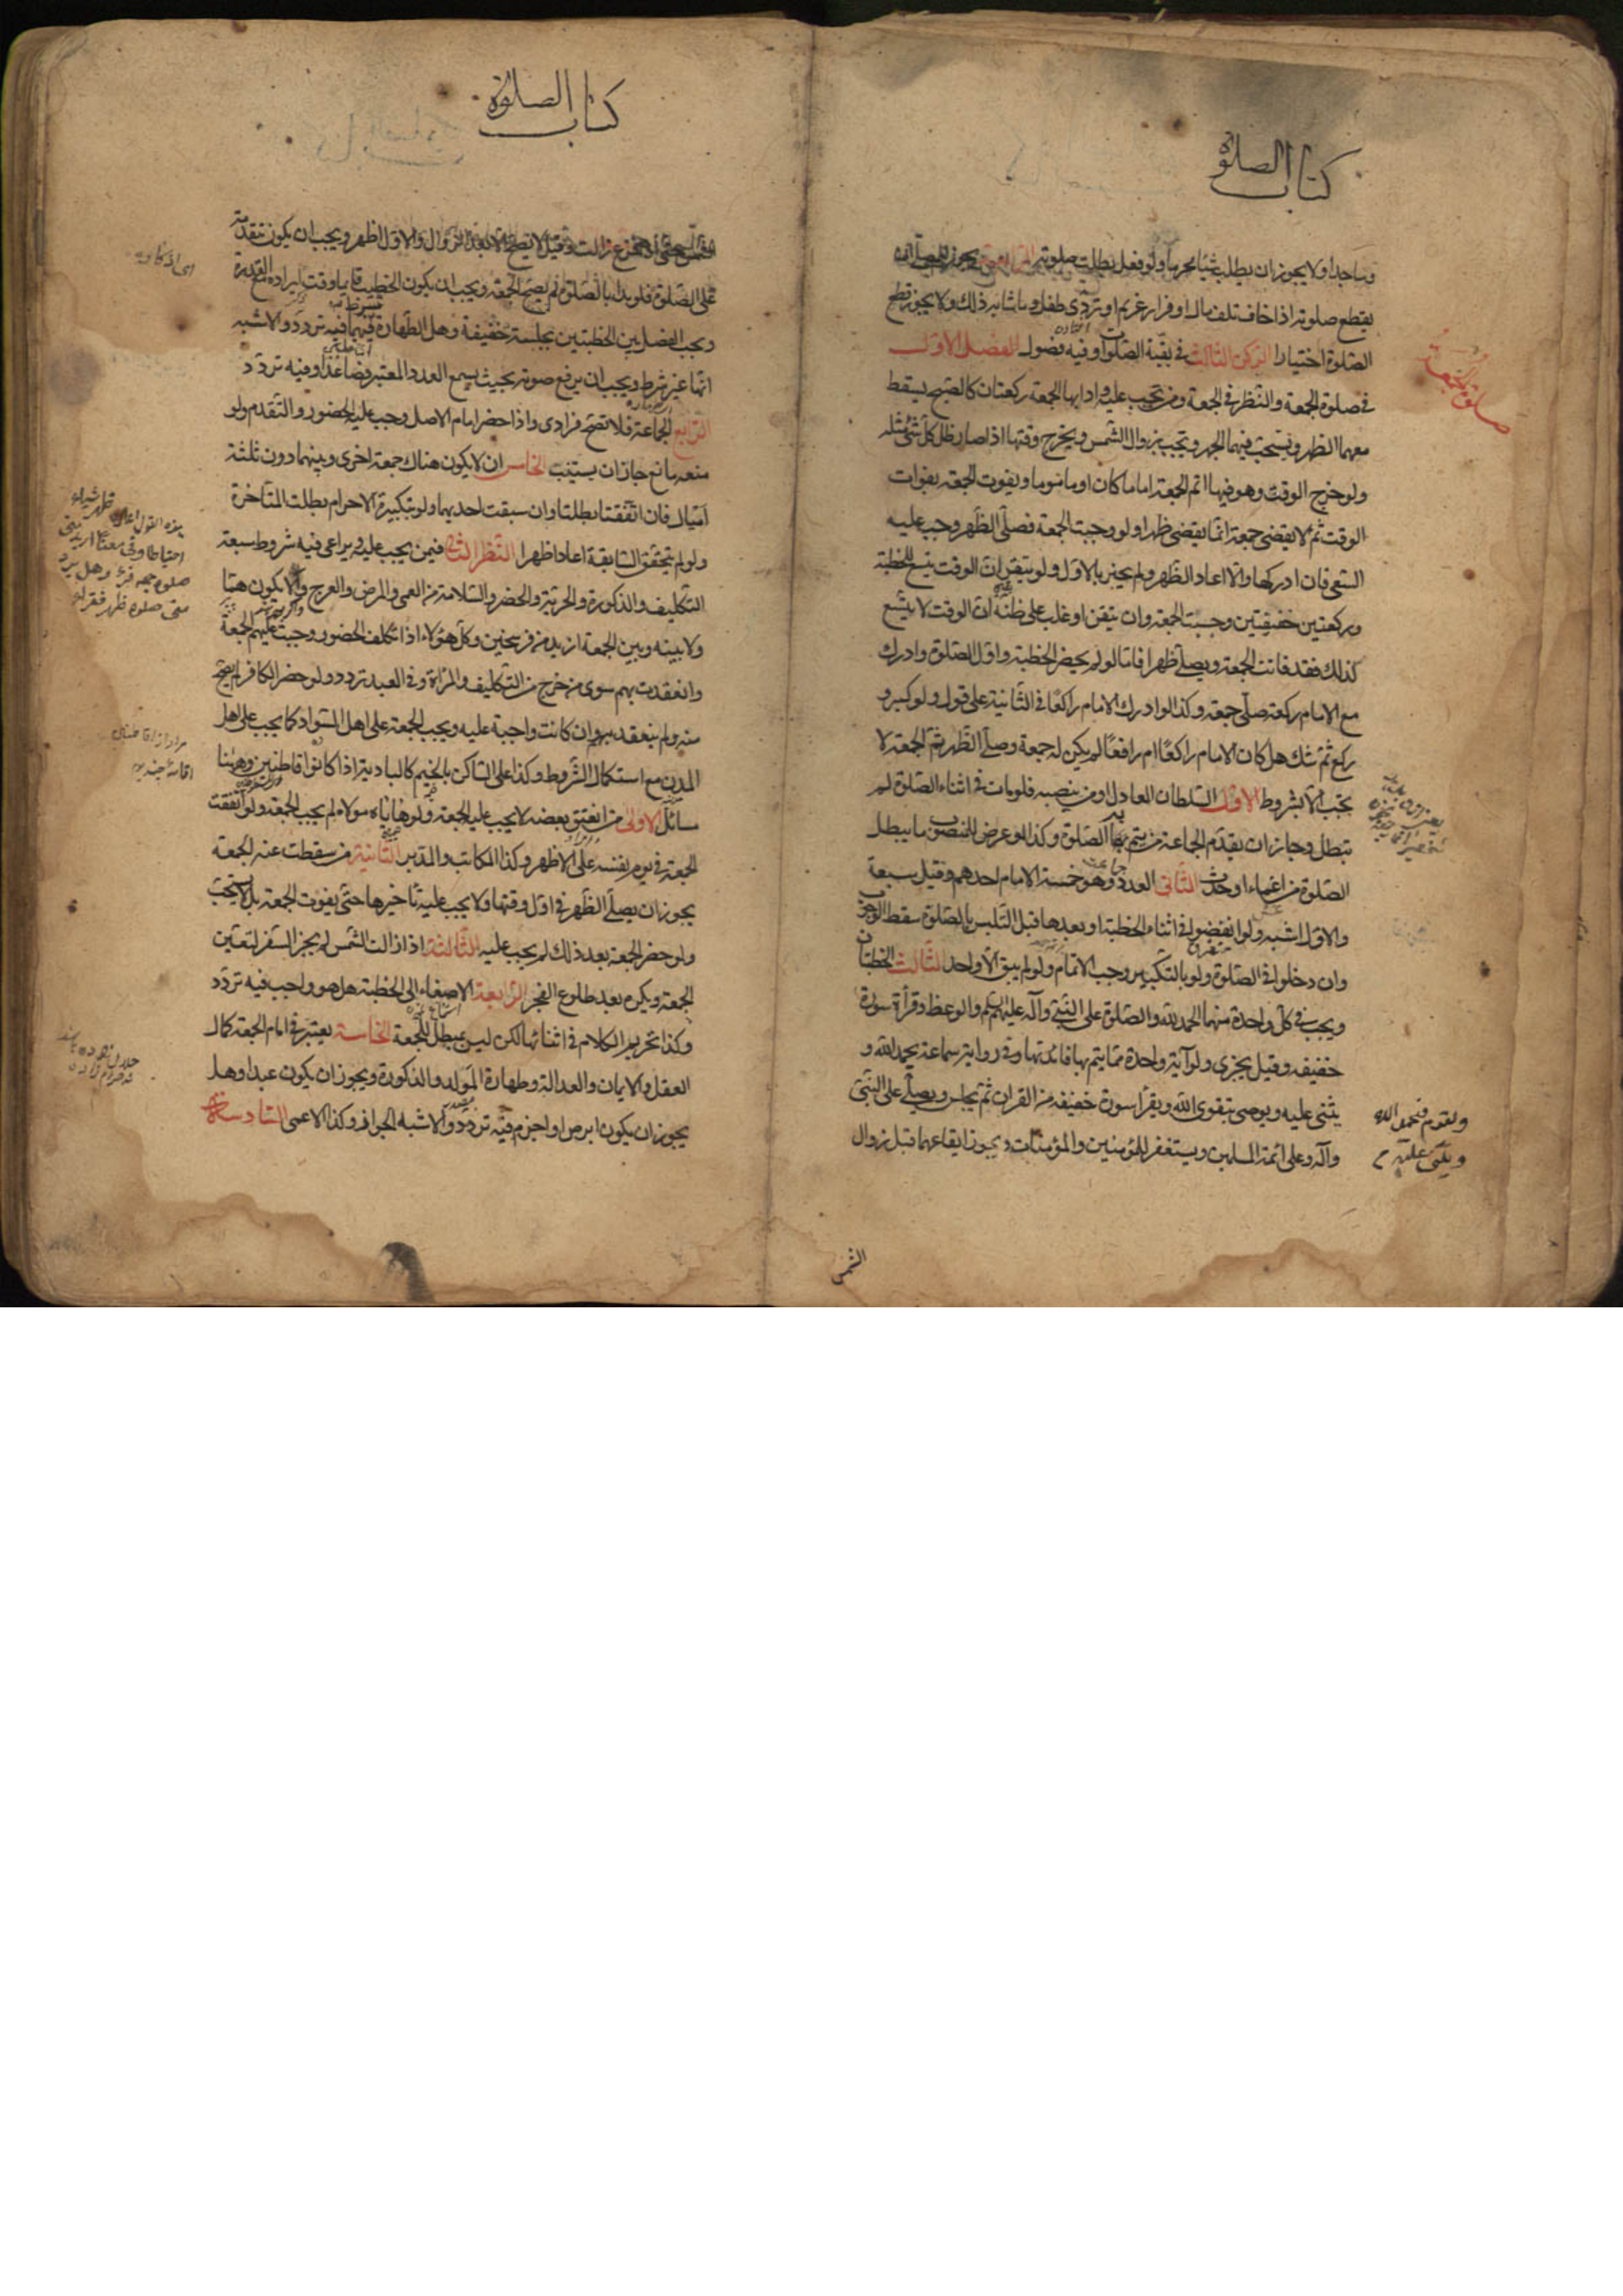 كتاب الصلوة
وساجدا ولا يجوز ان يطلب شيئا محرما ولو فعل بطلت صلوته يجوز للمصلى ان
يقطع صلوته اذا خاف تلف مال او فرار غريم او تردى طفل وما شابه ذلك ولا يجوز قطع
الصلوة اختيارا الركن الثالث فى بقية الصلوات وفيه فصول الفصل الاول
فى صلوة الجمعة والنظر فى الجمعة ومن تجب عليه وادابها الجمعة ركعتان كالصبح يسقط
معهما الظهر ويستحب فيهما الجهر وتجب بزوال الشمس ويخرج وقتها اذا صار ظل كل شئ مثله
ولو خرج الوقت وهو فيها اتم الجمعة اماما كان او ماموما ويفوت الجمعة بفوات
الوقت ثم لا يقضى جمعة انما يقضى ظهرا ولو وجبت الجمعة فصلى الظهر وجب عليه
السعى فان ادركها والا اعاد الظهر ولم يجتز بالاول ولو تيقن ان الوقت يتسع للخطبة
وركعتين خفيفتين وجبت الجمعة وان تيقن او غلب على ظنه ان الوقت لا يتسع
كذلك فقد فاتت الجمعة ويصلى ظهرا فاما لو لم يحضر الخطبة واول الصلوة وادرك
مع الامام ركعة صلى جمعة وكذا لو ادرك الامام راكعا فى الثانية على قول ولو كبر و
ركع ثم شك هل كان الامام راكعا ام رافعا لم يكن له جمعة وصلى الظهر ثم الجمعة لا
تجب الا بشروط الاول السلطان العادل او من ينصبه فلو مات فى اثناء الصلوة لم
تبطل وجاز ان يقدم الجماعة من يتم بهم الصلوة وكذا لو عرض للمنصوب ما يبطل
الصلوة من اغماء او حدث الثانى العدد وهو خمسة الامام احدهم وقيل سبعة
والاول اشبه ولو انفضوا فى اثناء الخطبة او بعدها قبل التلبس بالصلوة سقط الوجوب
وان دخلوا فى الصلوة ولو بالتكبير وجب الاتمام ولو لم يبق الا واحد الثالث الخطبتان
ويجب فى كل واحدة منهما الحمد لله والصلوة على النبى وآله عليهم والوعظ وقرأة سورة
خفيفه وقيل يجزى ولو آية واحدة مما يتم بها فائدتها وفى رواية سماعة يحمد الله و
يثنى عليه ويوصى بتقوى الله ويقرأ سورة خفيفه من القران ثم يجلس ويصلى على النبى
وآله وعلى ائمة المسلمين ويستغفر للمؤمنين والمؤمنات ويجوز ايقاعهما قبل زوال
الشمس
كتاب الصلوة
الشمس حتى اذا فرغ زالت وقيل لا تصح الا بعد الزوال والاول اظهر ويجب ان يكون متقدمة
على الصلوة فلو بدا بالصلوة لم تصح الجمعة ويجب ان يكون الخطيب قايما وقت ايراده مع القدرة
ويجب الفصل بين الخطبتين بجلسة خفيفة وهل الطهارة فيهما فيه تردد والاشبه
انها غير شرط ويجب ان يرفع صوته بحيث يسمع العدد المعتبر فصاعدا وفيه تردد
الرابع الجماعة فلا تصح فرادى واذا حضر امام الاصل وجب عليه الحضور والتقدم ولو
منعه مانع جاز ان يستنيب الخامس ان لا يكون هناك جمعة اخرى وبينهما دون ثلثة
اميال فان اتفقتا بطلتا وان سبقت احديهما ولو بتكبيرة الاحرام بطلت المتاخرة
ولو لم يتحقق السابقة اعادا ظهرا النظر الثانى فيمن يجب عليه ويراعى فيه شروط سبعة
التكليف والذكورة والحرية والحضر والسلامة من العمى والمرض والعرج والا يكون همّا
ولا بينه وبين الجمعة ازيد من فرسخين وكل هؤلاء اذا تكلف الحضور وجبت عليهم الجمعة
وانعقدت بهم سوى من خرج من التكليف والمراة وفى العبد تردد ولو حضر الكافر لم يصح
منه ولم ينعقد به وان كانت واجبة عليه ويجب الجمعة على اهل السواد كما يجب على اهل
المدن مع استكمال الشروط وكذا على الساكن بالخيم كالبادية اذا كانوا قاطنين وههنا
مسائل الاولى من انعتق بعضه لا يجب عليه الجمعة ولو هاياه مولاه لم يجب الجمعة ولو اتفقت
الجمعة فى يوم نفسه على الاظهر وكذا المكاتب والمدبر الثانية من سقطت عنه الجمعة
يجوز ان يصلى الظهر فى اول وقتها ولا يجب عليه تاخيرها حتى يفوت الجمعة بل لا يستحب
ولو حضر الجمعة بعد ذلك لم يجب عليه الثالثة اذا زالت الشمس لم يجز السفر لتعين
الجمعة ويكره بعد طلوع الفجر الرابعة الاصغاء الى الخطبة هل هو واجب فيه تردد
وكذا تحريم الكلام فى اثنائها لكن ليس بمبطل للجمعة الخامسة يعتبر فى امام الجمعة كمال
العقل والايمان والعدالة وطهارة المولد والذكورة ويجوز ان يكون عبدا وهل
يجوز ان يكون ابرص او اجذم فيه تردد والاشبه الجواز وكذا الاعمى السادسة